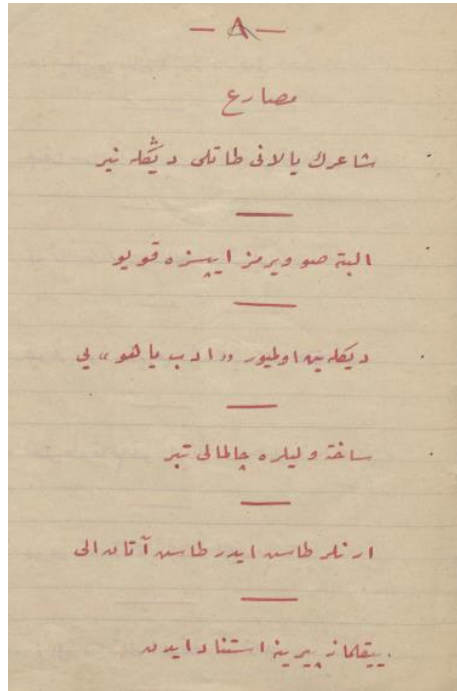 — ٨ —
مصارع
شاعرك يالانى طاتلى ديڭله نير
البته صو ويرمز ايپسزه قويو
ديكله ين اولميور «ادب يا هو» يى
ساخته وليلره چالمالى تبر
ارنلر طاسه ايدر طاسه آتان الى
ييقلماز پيرينه استناد ايدن